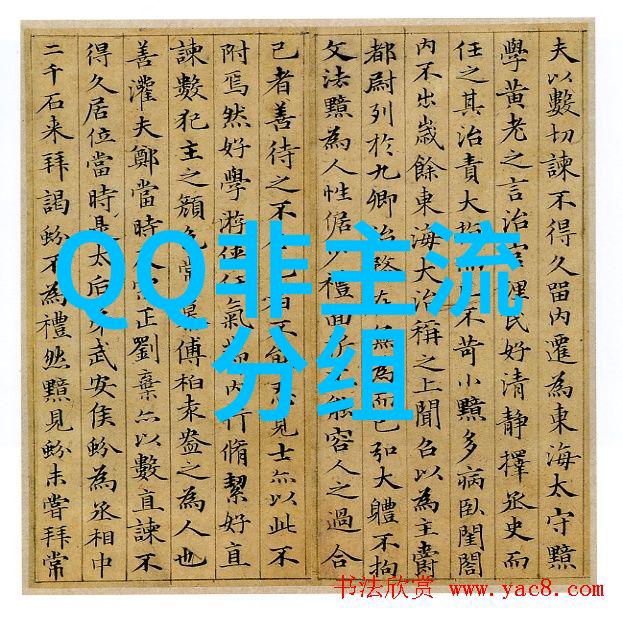 夫以數切諫不得久留內遷為東海太守黯
學黃老之言治官理民好清靜擇丞史而
任之其治責大指而不苛小黯多病臥閨閤
內不出歲餘東海大治稱之上聞召以為主爵
都尉列於九卿治務在無為而已弘大體不拘
文法黯為人性倨少禮面折不能容人之過合
己者善待之不合己者不能忍見士亦以此不
附焉然好學游俠任氣節內行脩絜好直
諫數犯主之顏色常慕傅柏袁盎之為人也
善灌夫鄭當時及宗正劉棄亦以數直諫不
得久居位當時是太后弟武安侯蚡為丞相中
二千石來拜謁蚡不為禮然黯見蚡未嘗拜常
QQ非主流
分组
书法欣赏 www.yac8.com